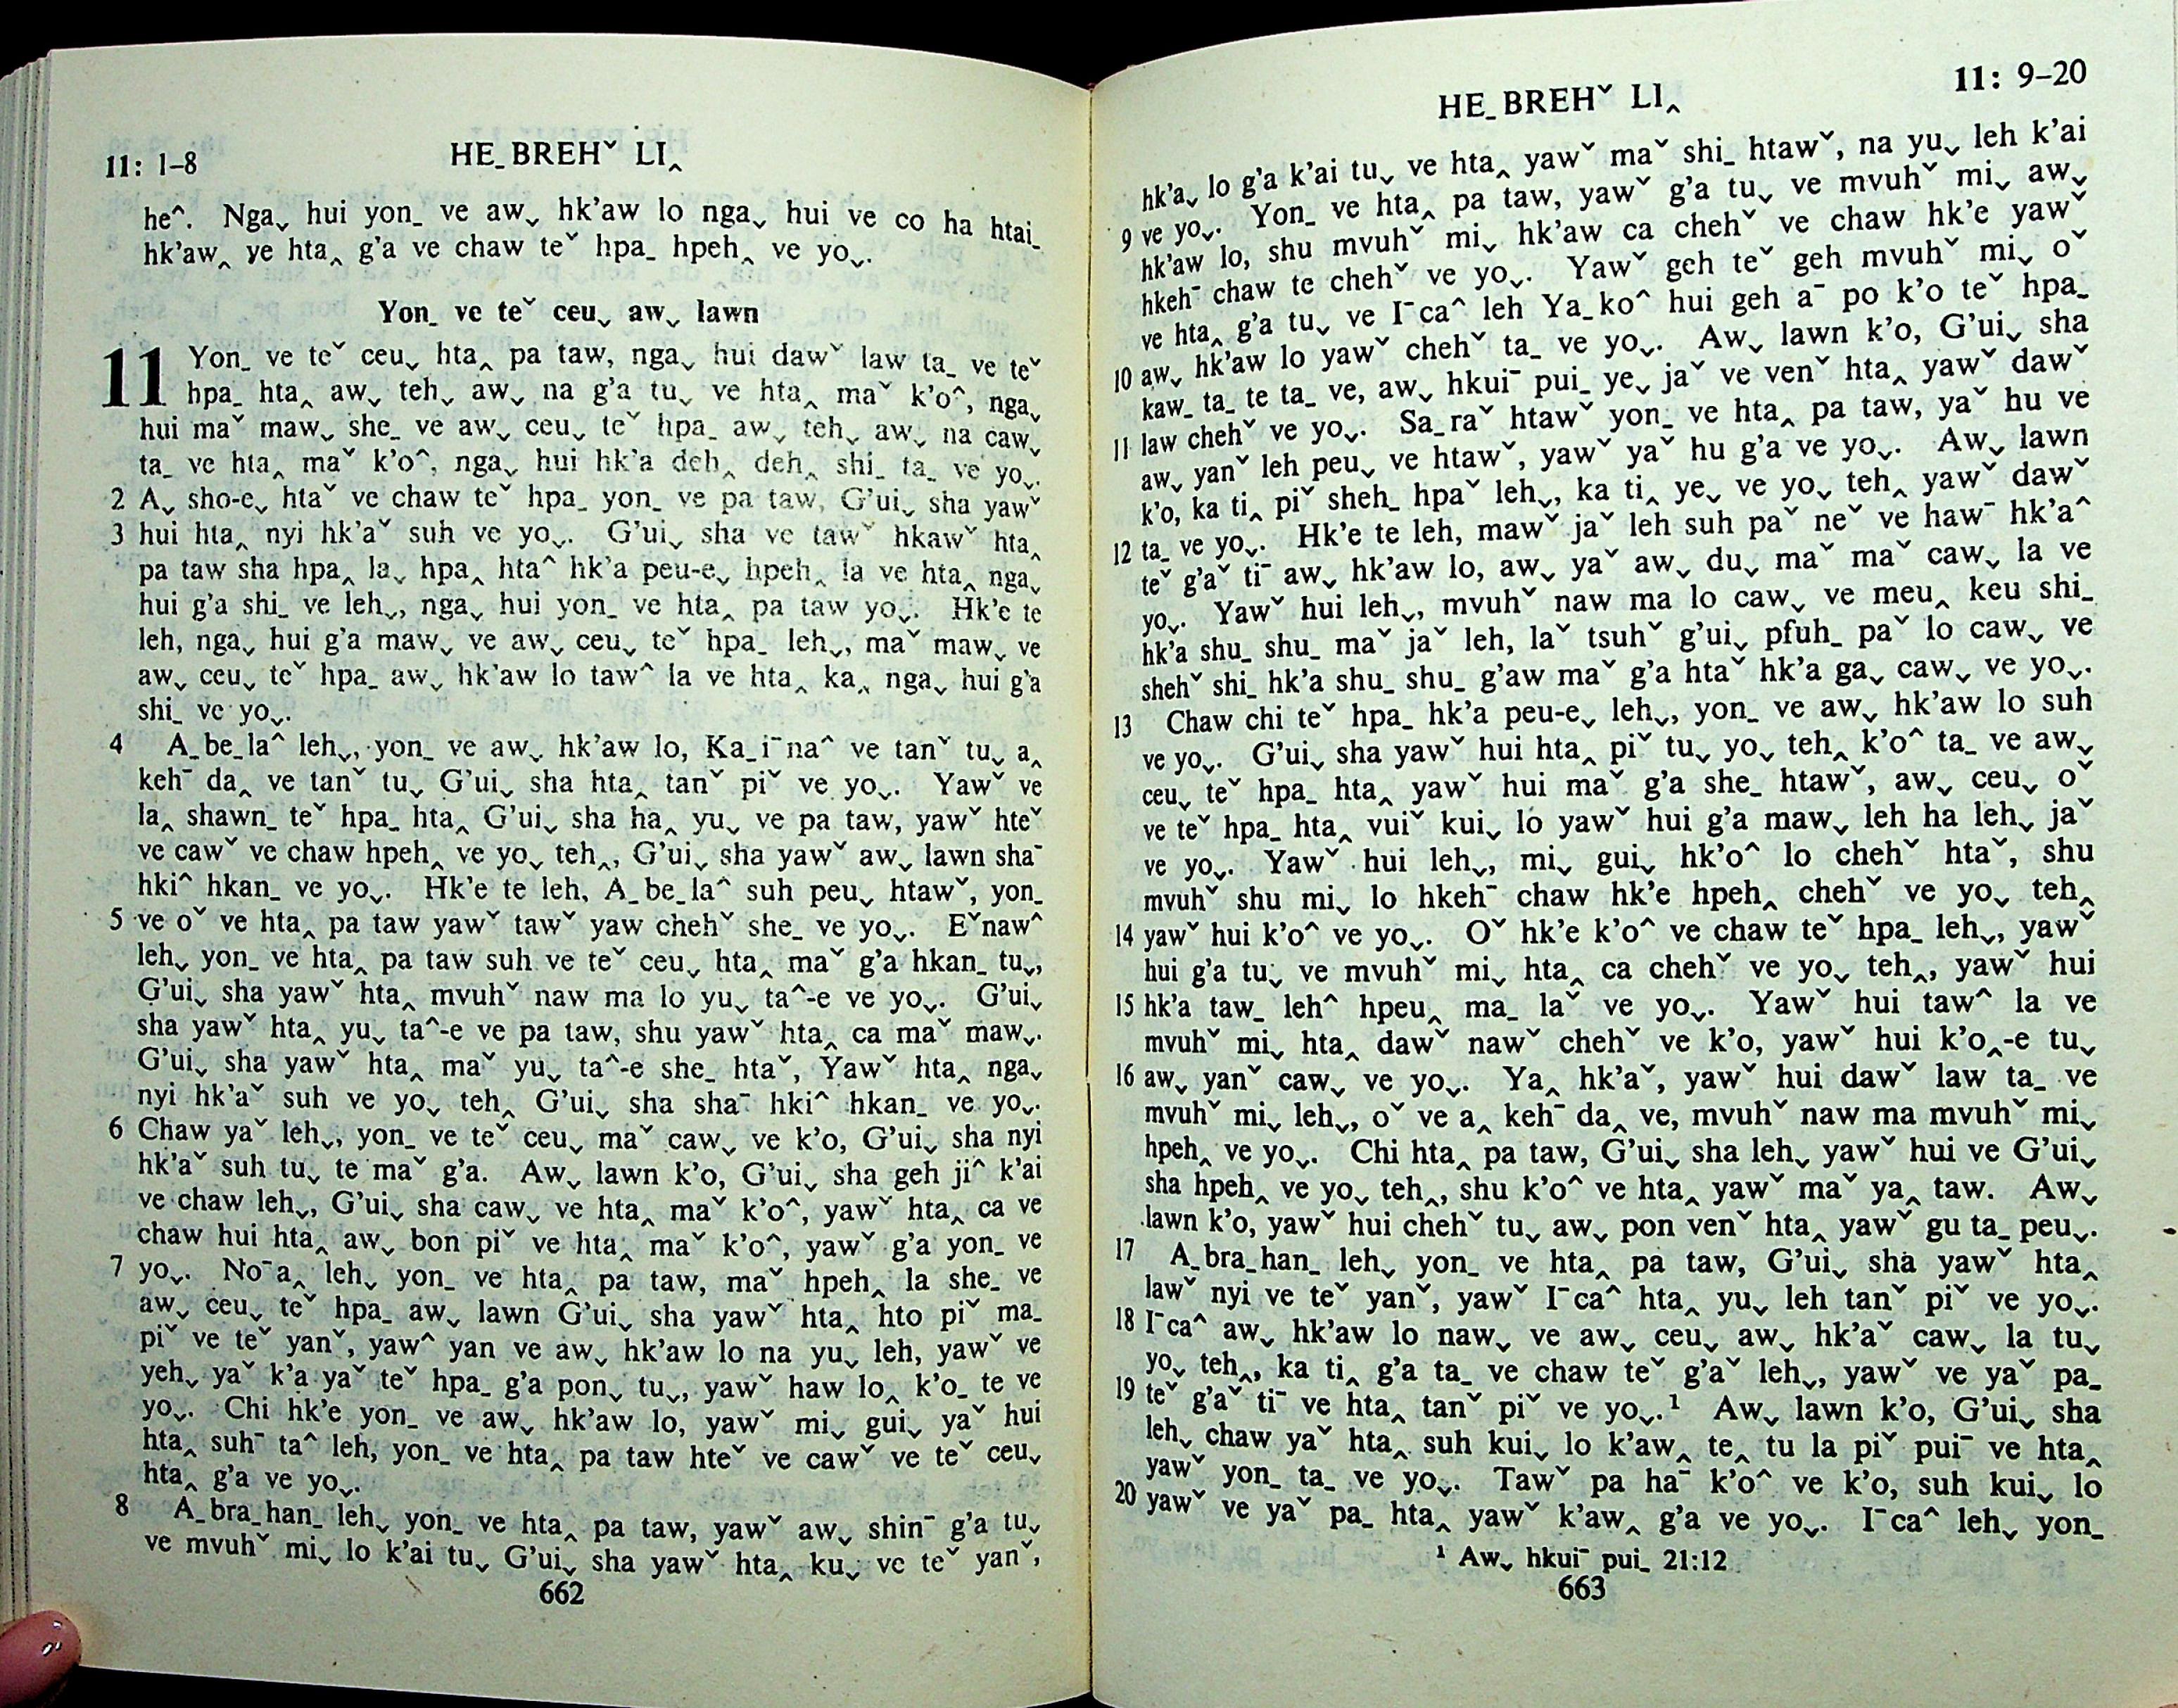 11: 1–8
HE_ BREHˇ LI‸
he^. Nga˯ hui yon_ ve aw˯ hk'aw lo nga˯ hui ve co ha htai_
hk'aw‸ ye hta‸ g'a ve chaw teˇ hpa_ hpeh‸ ve yo˯.
Yon_ ve teˇ ceu˯ aw˯ lawn
11 Yon_ ve teˇ ceu˯ hta‸ pa taw, nga˯ hui dawˇ law ta_ ve teˇ
hpa_ hta‸ aw˯ teh˯ aw˯ na g'a tu˯ ve hta‸ maˇ k'o^, nga˯
hui maˇ maw˯ she_ ve aw˯ ceu˯ teˇ hpa_ aw˯ teh˯ aw˯ na caw˯
ta_ ve hta‸ maˇ k'o^, nga˯ hui hk'a deh‸ deh‸ shi_ ta_ ve yo˯.
2 A˯ sho-e˯ htaˇ ve chaw teˇ hpa_ yon_ ve pa taw, G'ui˯ sha yawˇ
3 hui hta‸ nyi hk'aˇ suh ve yo˯. G'ui˯ sha ve tawˇ hkawˇ hta‸
pa taw sha hpa‸ la˯ hpa‸ hta^ hk'a peu-e˯ hpeh‸ la ve hta‸ nga˯
hui g'a shi_ ve leh˯, nga˯ hui yon_ ve hta‸ pa taw yo˯. Hk'e te
leh, nga˯ hui g'a maw˯ ve aw˯ ceu˯ teˇ hpa_ leh˯, maˇ maw˯ ve
aw˯ ceu˯ teˇ hpa_ aw˯ hk'aw lo taw^ la ve hta‸ ka‸ nga˯ hui g'a
shi_ ve yo˯.
4 A_be_la^ leh˯, yon_ ve aw˯ hk'aw lo, Ka_iˉna^ ve tanˇ tu˯ a‸
kehˉ da‸ ve tanˇ tu˯ G'ui˯ sha hta‸ tanˇ piˇ ve yo˯. Yawˇ ve
la‸ shawn_ teˇ hpa_ hta‸ G'ui˯ sha ha‸ yu˯ ve pa taw, yawˇ hteˇ
ve cawˇ ve chaw hpeh‸ ve yo˯ teh‸, G'ui˯ sha yawˇ aw˯ lawn shaˉ
hki^ hkan_ ve yo˯. Hk'e te leh, A_be_la^ suh peu˯ htawˇ, yon_
5 ve oˇ ve hta‸ pa taw yawˇ tawˇ yaw chehˇ she_ ve yo˯. Eˇnaw^
leh˯ yon_ ve hta‸ pa taw suh ve teˇ ceu˯ hta‸ maˇ g'a hkan_ tu˯,
G'ui˯ sha yawˇ hta‸ mvuhˇ naw ma lo yu˯ ta^-e ve yo˯. G'ui˯
sha yawˇ hta‸ yu˯ ta^-e ve pa taw, shu yawˇ hta‸ ca maˇ maw˯.
G'ui˯ sha yawˇ hta‸ maˇ yu˯ ta^-e she_ htaˇ, Yawˇ hta‸ nga˯
nyi hk'aˇ suh ve yo˯ teh‸ G'ui˯ sha shaˉ hki^ hkan_ ve yo˯.
6 Chaw yaˇ leh˯, yon_ ve teˇ ceu˯ maˇ caw˯ ve k'o, G'ui˯ sha nyi
hk'aˇ suh tu˯ te maˇ g'a. Aw˯ lawn k'o, G'ui˯ sha geh ji^ k'ai
ve chaw leh˯, G'ui˯ sha caw˯ ve hta‸ maˇ k'o^, yawˇ hta‸ ca ve
chaw hui hta‸ aw˯ bon piˇ ve hta‸ maˇ k'o^, yawˇ g'a yon_ ve
7 yo˯. Noˉa‸ leh˯ yon_ ve hta‸ pa taw, maˇ hpeh‸ la she_ ve
aw˯ ceu˯ teˇ hpa_ aw˯ lawn G'ui˯ sha yawˇ hta‸ hto piˇ ma_
piˇ ve teˇ yanˇ, yaw^ yan ve aw˯ hk'aw lo na yu˯ leh, yawˇ ve
yeh˯ yaˇ k'a yaˇ teˇ hpa_ g'a pon˯ tu˯, yawˇ haw lo‸ k'o_ te ve
yo˯. Chi hk'e yon_ ve aw˯ hk'aw lo, yawˇ mi˯ gui˯ yaˇ hui
hta‸ suhˉ ta^ leh, yon_ ve hta‸ pa taw hteˇ ve cawˇ ve teˇ ceu˯
hta‸ g'a ve yo˯.
8 A_bra_han_ leh˯ yon_ ve hta‸ pa taw, yawˇ aw˯ shinˉ g'a tu˯
ve mvuhˇ mi˯ lo k'ai tu˯ G'ui˯ sha yawˇ hta‸ ku˯ ve teˇ yanˇ,
662
HE_ BREHˇ LI‸
11: 9–20
hk'a˯ lo g'a k'ai tu˯ ve hta‸ yawˇ maˇ shi_ htawˇ, na yu˯ leh k'ai
9 ve yo˯. Yon_ ve hta‸ pa taw, yawˇ g'a tu˯ ve mvuhˇ mi˯ aw˯
hk'aw lo, shu mvuhˇ mi˯ hk'aw ca chehˇ ve chaw hk'e yawˇ
hkehˉ chaw te chehˇ ve yo˯. Yawˇ geh teˇ geh mvuhˇ mi˯ oˇ
ve hta‸ g'a tu˯ ve Iˉca^ leh Ya_ko^ hui geh aˉ po k'o teˇ hpa_
10 aw˯ hk'aw lo yawˇ chehˇ ta_ ve yo˯. Aw˯ lawn k'o, G'ui˯ sha
kaw_ ta_ te ta_ ve, aw˯ hkuiˉ pui_ ye˯ jaˇ ve venˇ hta‸ yawˇ dawˇ
11 law chehˇ ve yo˯. Sa_raˇ htawˇ yon_ ve hta‸ pa taw, yaˇ hu ve
aw˯ yanˇ leh peu˯ ve htawˇ, yawˇ yaˇ hu g'a ve yo˯. Aw˯ lawn
k'o, ka ti‸ piˇ sheh_ hpaˇ leh˯, ka ti‸ ye˯ ve yo˯ teh‸ yawˇ dawˇ
12 ta_ ve yo˯. Hk'e te leh, mawˇ jaˇ leh suh paˇ neˇ ve hawˉ hk'a^
teˇ g'aˇ tiˉ aw˯ hk'aw lo, aw˯ yaˇ aw˯ du˯ maˇ maˇ caw˯ la ve
yo˯. Yawˇ hui leh˯, mvuhˇ naw ma lo caw˯ ve meu‸ keu shi_
hk'a shu_ shu_ maˇ jaˇ leh, laˇ tsuhˇ g'ui˯ pfuh_ paˇ lo caw˯ ve
shehˇ shi_ hk'a shu_ shu_ g'aw maˇ g'a htaˇ hk'a ga˯ caw˯ ve yo˯.
13 Chaw chi teˇ hpa_ hk'a peu-e˯ leh˯, yon_ ve aw˯ hk'aw lo suh
ve yo˯. G'ui˯ sha yawˇ hui hta‸ piˇ tu˯ yo˯ teh‸ k'o^ ta_ ve aw˯
ceu˯ teˇ hpa_ hta‸ yawˇ hui maˇ g'a she_ htawˇ, aw˯ ceu˯ oˇ
ve teˇ hpa_ hta‸ vuiˇ kui˯ lo yawˇ hui g'a maw˯ leh ha leh˯ jaˇ
ve yo˯. Yawˇ hui leh˯, mi˯ gui˯ hk'o^ lo chehˇ htaˇ, shu
mvuhˇ shu mi˯ lo hkehˉ chaw hk'e hpeh‸ chehˇ ve yo˯ teh‸
14 yawˇ hui k'o^ ve yo˯. Oˇ hk'e k'o^ ve chaw teˇ hpa_ leh˯, yawˇ
hui g'a tu˯ ve mvuhˇ mi˯ hta‸ ca chehˇ ve yo˯ teh‸, yawˇ hui
15 hk'a taw_ leh^ hpeu‸ ma_ laˇ ve yo˯. Yawˇ hui taw^ la ve
mvuhˇ mi˯ hta‸ dawˇ nawˇ chehˇ ve k'o, yawˇ hui k'o‸-e tu˯
16 aw˯ yanˇ caw˯ ve yo˯. Ya‸ hk'aˇ, yawˇ hui dawˇ law ta_ ve
mvuhˇ mi˯ leh˯, oˇ ve a‸ kehˉ da‸ ve, mvuhˇ naw ma mvuhˇ mi˯
hpeh‸ ve yo˯. Chi hta‸ pa taw, G'ui˯ sha leh˯ yawˇ hui ve G'ui˯
sha hpeh‸ ve yo˯ teh‸, shu k'o^ ve hta‸ yawˇ maˇ ya‸ taw. Aw˯
lawn k'o, yawˇ hui chehˇ tu˯ aw˯ pon venˇ hta‸ yawˇ gu ta_ peu˯.
17 A_bra_han_ leh˯ yon_ ve hta‸ pa taw, G'ui˯ sha yawˇ hta‸
lawˇ nyi ve teˇ yanˇ, yawˇ Iˉca^ hta‸ yu˯ leh tanˇ piˇ ve yo˯.
18 Iˉca^ aw˯ hk'aw lo naw˯ ve aw˯ ceu˯ aw˯ hk'aˇ caw˯ la tu˯
yo˯ teh‸, ka ti‸ g'a ta_ ve chaw teˇ g'aˇ leh˯, yawˇ ve yaˇ pa_
19 teˇ g'aˇ tiˉ ve hta‸ tanˇ piˇ ve yo˯.¹ Aw˯ lawn k'o, G'ui˯ sha
leh˯ chaw yaˇ hta‸ suh kui˯ lo k'aw‸ te‸ tu la piˇ puiˉ ve hta‸
yawˇ yon_ ta_ ve yo˯. Tawˇ pa haˉ k'o^ ve k'o, suh kui˯ lo
20 yawˇ ve yaˇ pa_ hta‸ yawˇ k'aw‸ g'a ve yo˯. Iˉca^ leh˯ yon_
¹ Aw˯ hkuiˉ pui_ 21:12
663